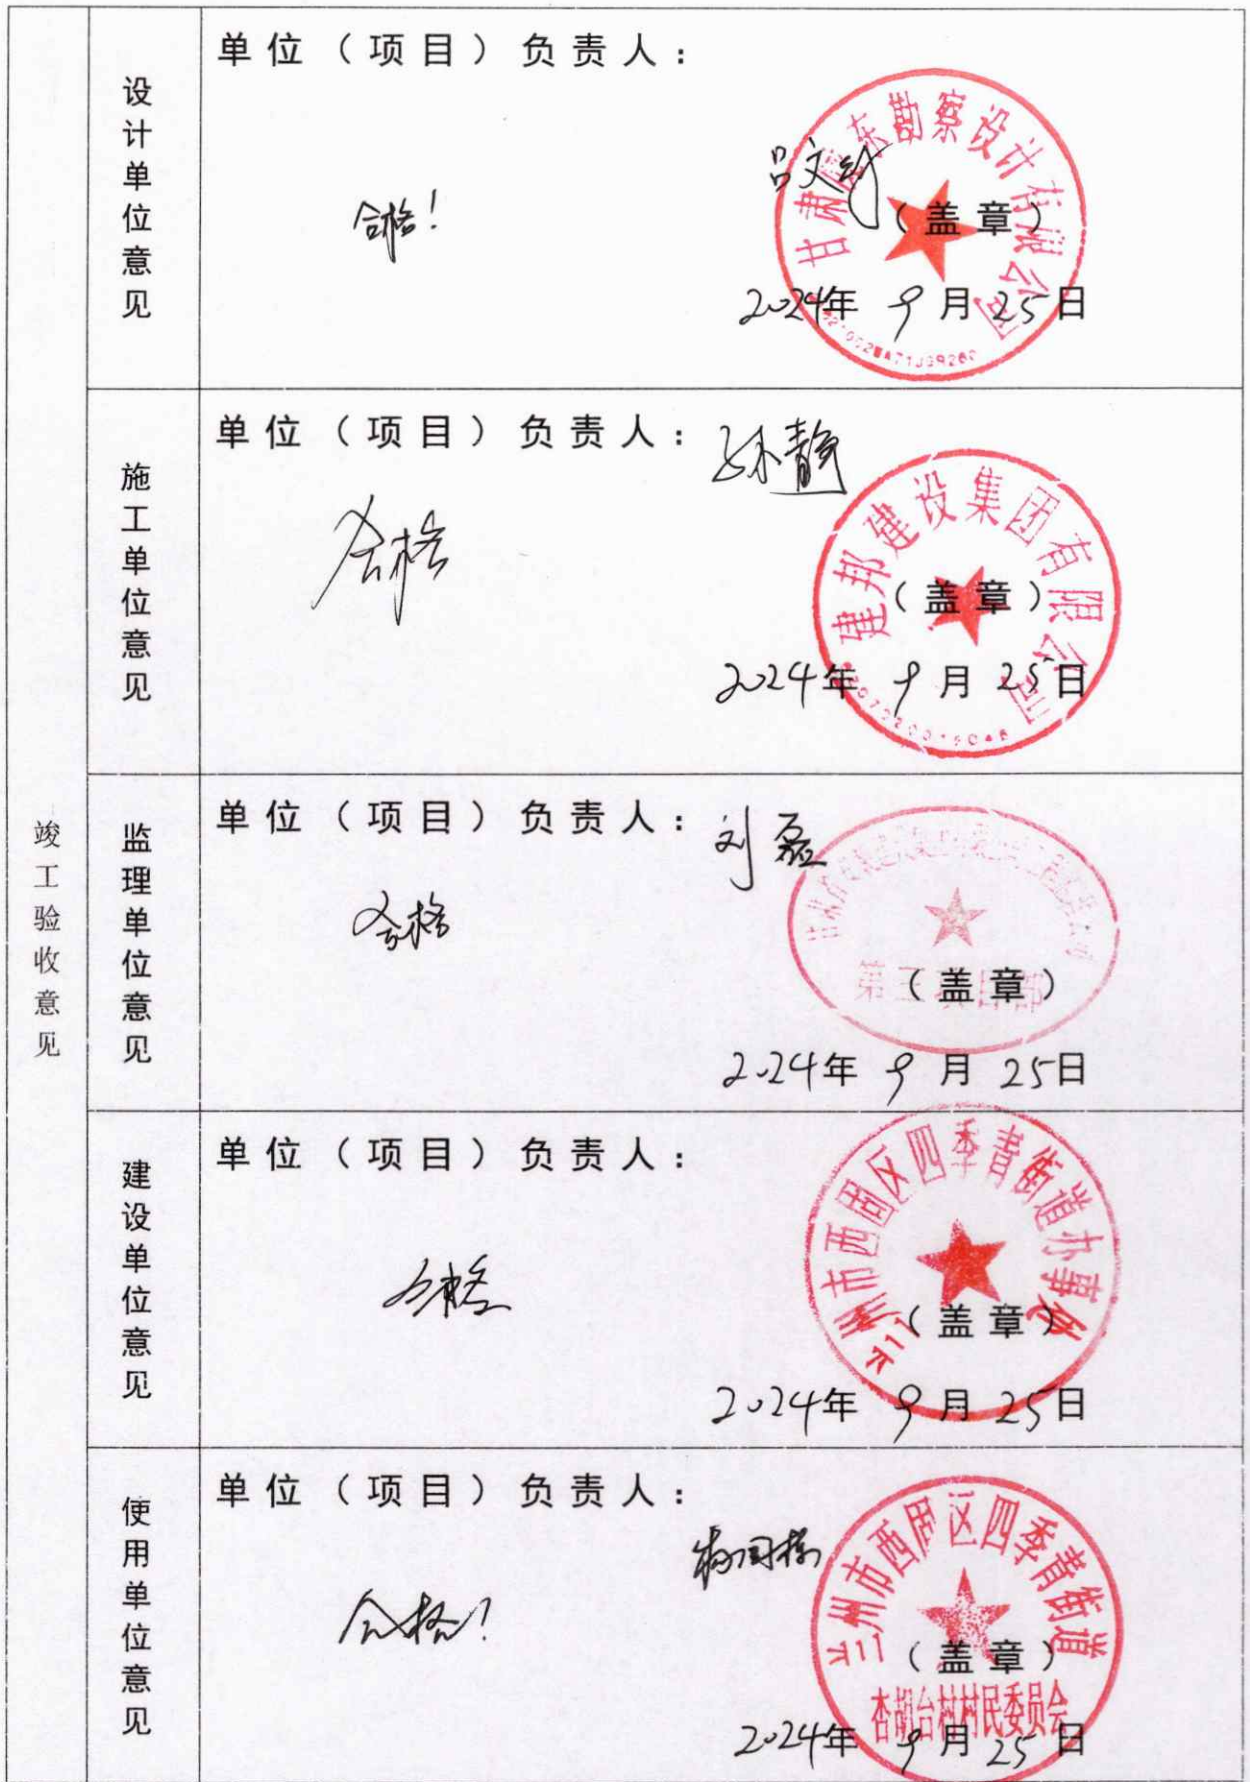 竣工验收意见
设计单位意见
单位（项目）负责人：
合格！
吕文
甘肃 东勘察设计有限公司
（盖章）
2024年 9月 25日
施工单位意见
单位（项目）负责人：孙静
合格
建邦建设集团有限公司
（盖章）
2024年 9月 25日
监理单位意见
单位（项目）负责人：刘磊
合格
第三项目部
（盖章）
2024年 9月 25日
建设单位意见
单位（项目）负责人：
合格
兰州市西固区四季青街道办事处
（盖章）
2024年 9月 25日
使用单位意见
单位（项目）负责人：
合格！
兰州市西固区四季青街道
（盖章）
杏胡台村村民委员会
2024年 9月 25日